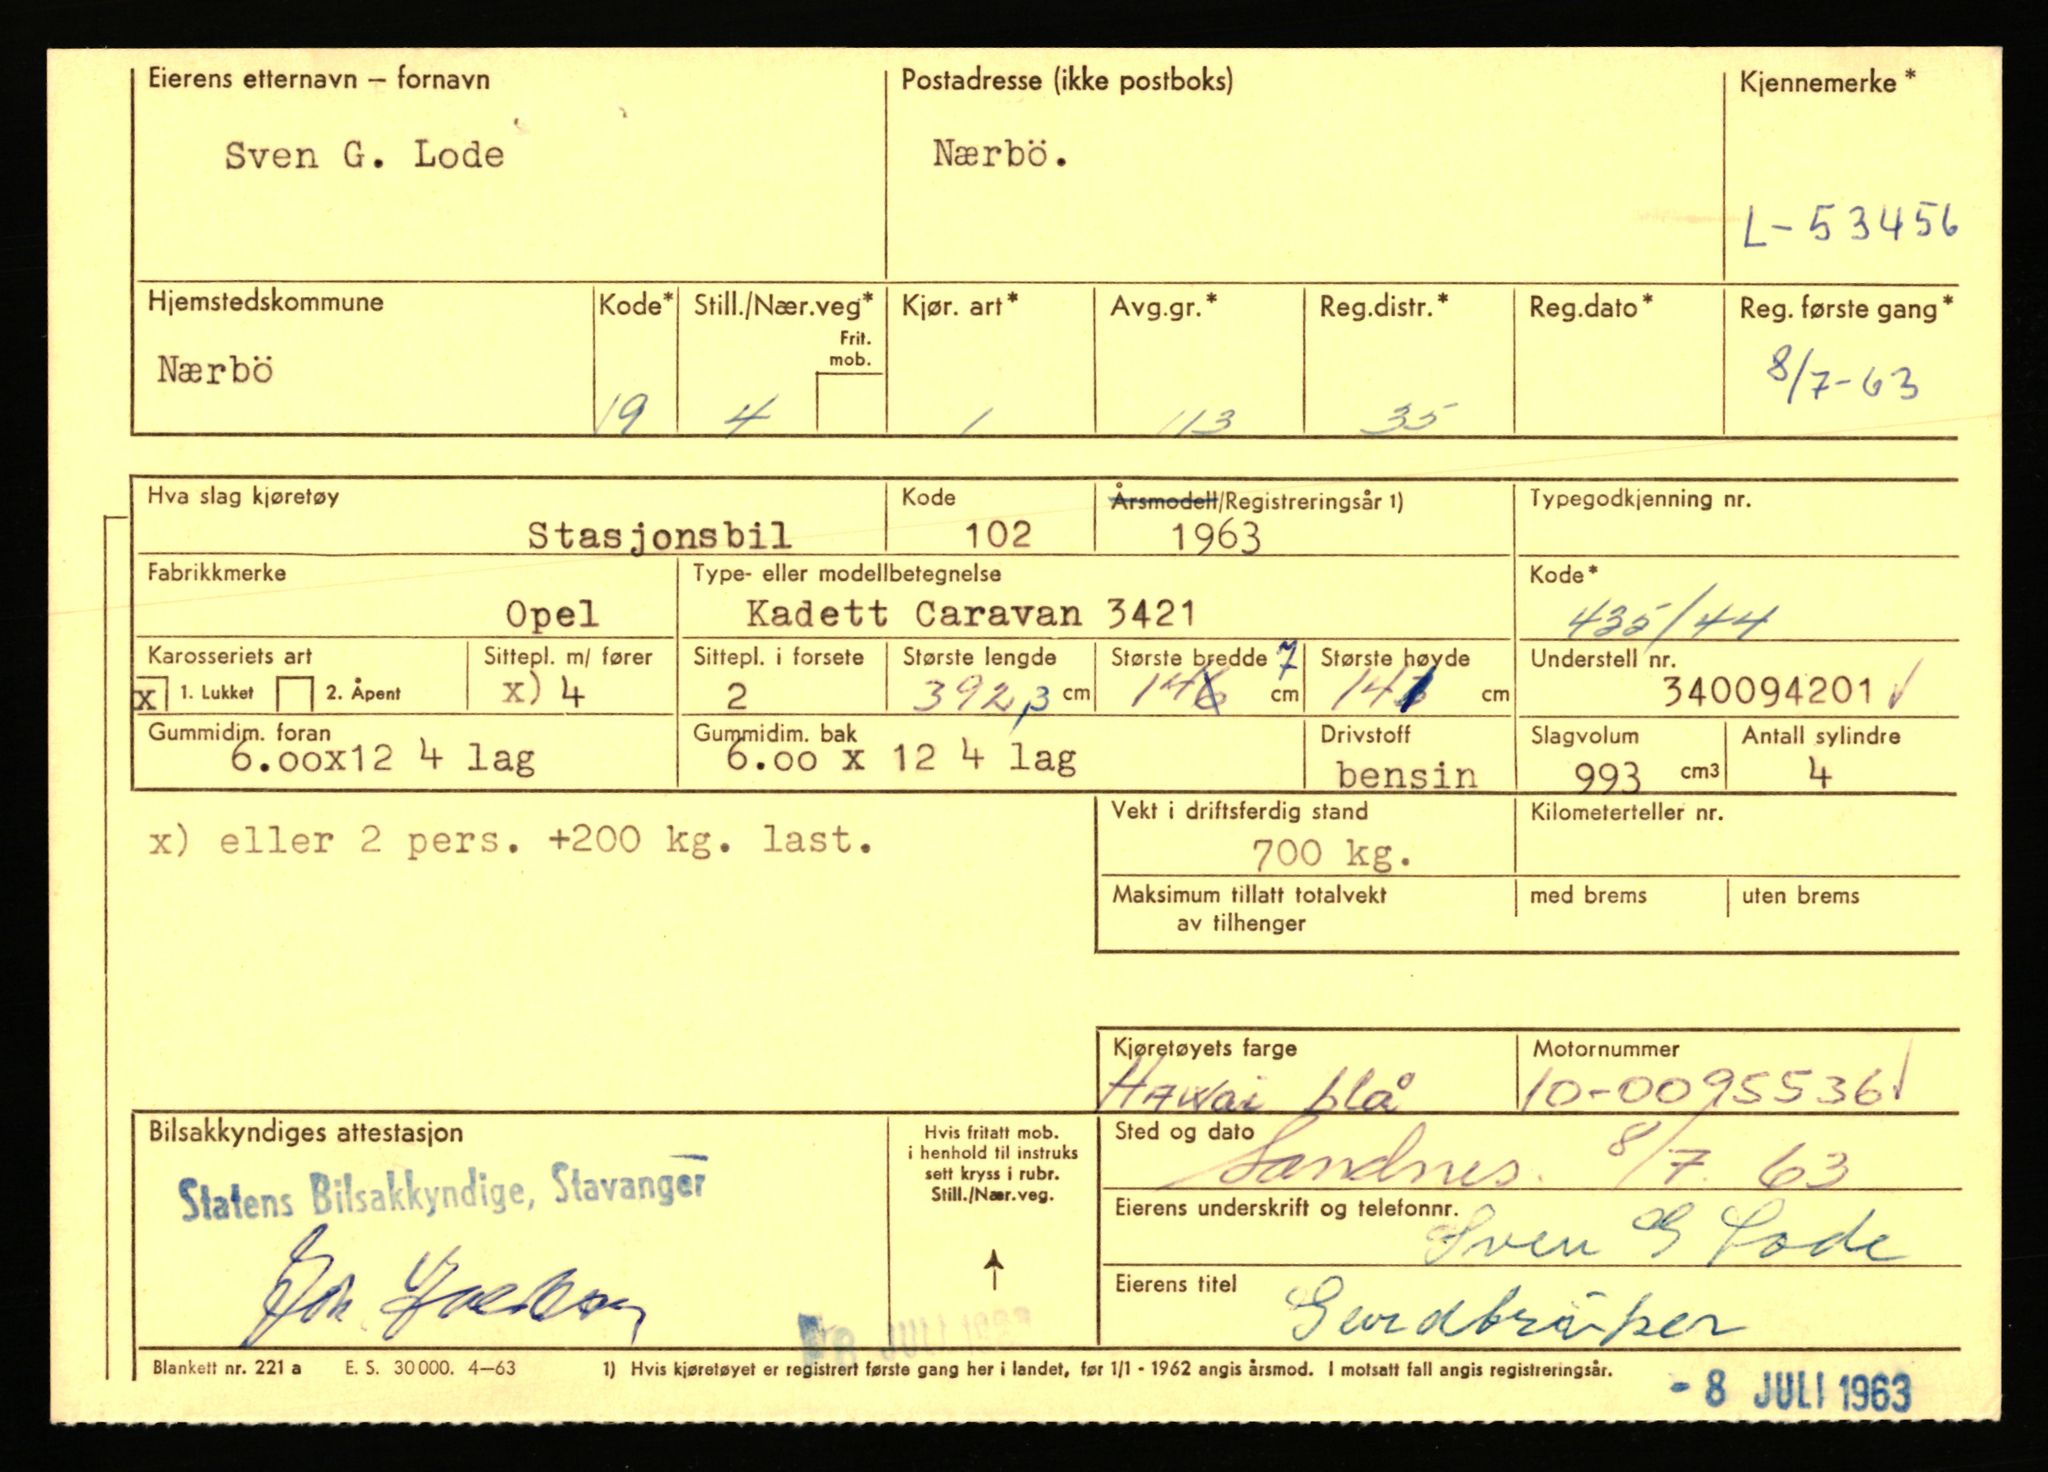 Eierens etternavn – fornavn
Postadresse (ikke postboks)
Kjennemerke *
Sven G. Lode
Nærbö.
L-53456
Hjemstedskommune
Kode*
Still./Nær.veg*
Frit.
mob.
Kjør. art*
Avg.gr.*
Reg.distr.*
Reg.dato*
Reg. første gang*
Nærbö
19
4
1
113
35
8/7-63
Hva slag kjøretøy
Kode
Årsmodell/Registreringsår 1)
Typegodkjenning nr.
Stasjonsbil
102
1963
Fabrikkmerke
Type- eller modellbetegnelse
Kode*
Opel
Kadett Caravan 3421
435/44
Karosseriets art
Sittepl. m/ fører
Sittepl. i forsete
Største lengde
Største bredde
7
Største høyde
Understell nr.
x 1. Lukket 2. Åpent
x) 4
2
392,3 cm
146 cm
141 cm
340094201
Gummidim. foran
Gummidim. bak
Drivstoff
Slagvolum
Antall sylindre
6.00x12 4 lag
6.00 x 12 4 lag
bensin
993 cm3
4
x) eller 2 pers. +200 kg. last.
Vekt i driftsferdig stand
Kilometerteller nr.
700 kg.
Maksimum tillatt totalvekt
av tilhenger
med brems
uten brems
Kjøretøyets farge
Motornummer
Hawai blå
10-0095536
Bilsakkyndiges attestasjon
Hvis fritatt mob.
i henhold til instruks
sett kryss i rubr.
Still./Nær.veg.
Sted og dato
Sandnes. 8/7. 63
Statens Bilsakkyndige, Stavanger
Eierens underskrift og telefonnr.
Sven G Lode
Eierens titel
Gardbruker
8 JULI 1963
Blankett nr. 221 a E. S. 30000. 4–63
1) Hvis kjøretøyet er registrert første gang her i landet, før 1/1 - 1962 angis årsmod. I motsatt fall angis registreringsår.
- 8 JULI 1963